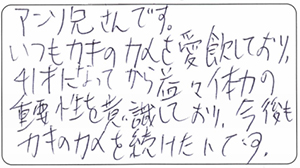 アンソ兄さんです。
いつもカキのカメを愛飲しており、
41才になってから益々体力の
重要性を意識しており、今後も
カキのカメを続けたいです。